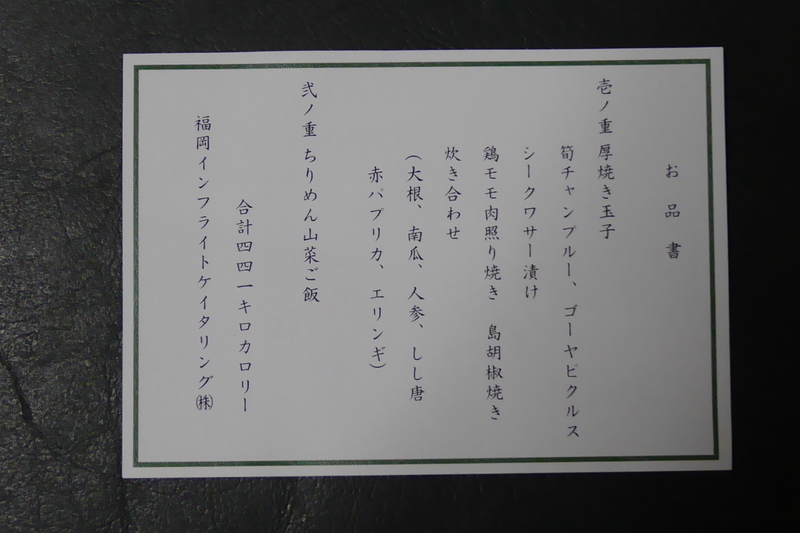 お品書
壱ノ重 厚焼き玉子
筍チャンプルー、ゴーヤピクルス
シークワサー漬け
鶏モモ肉照り焼き 島胡椒焼き
炊き合わせ
(大根、南瓜、人参、しし唐
赤パプリカ、エリンギ)
弐ノ重 ちりめん山菜ご飯
合計四四一キロカロリー
福岡インフライトケイタリング㈱